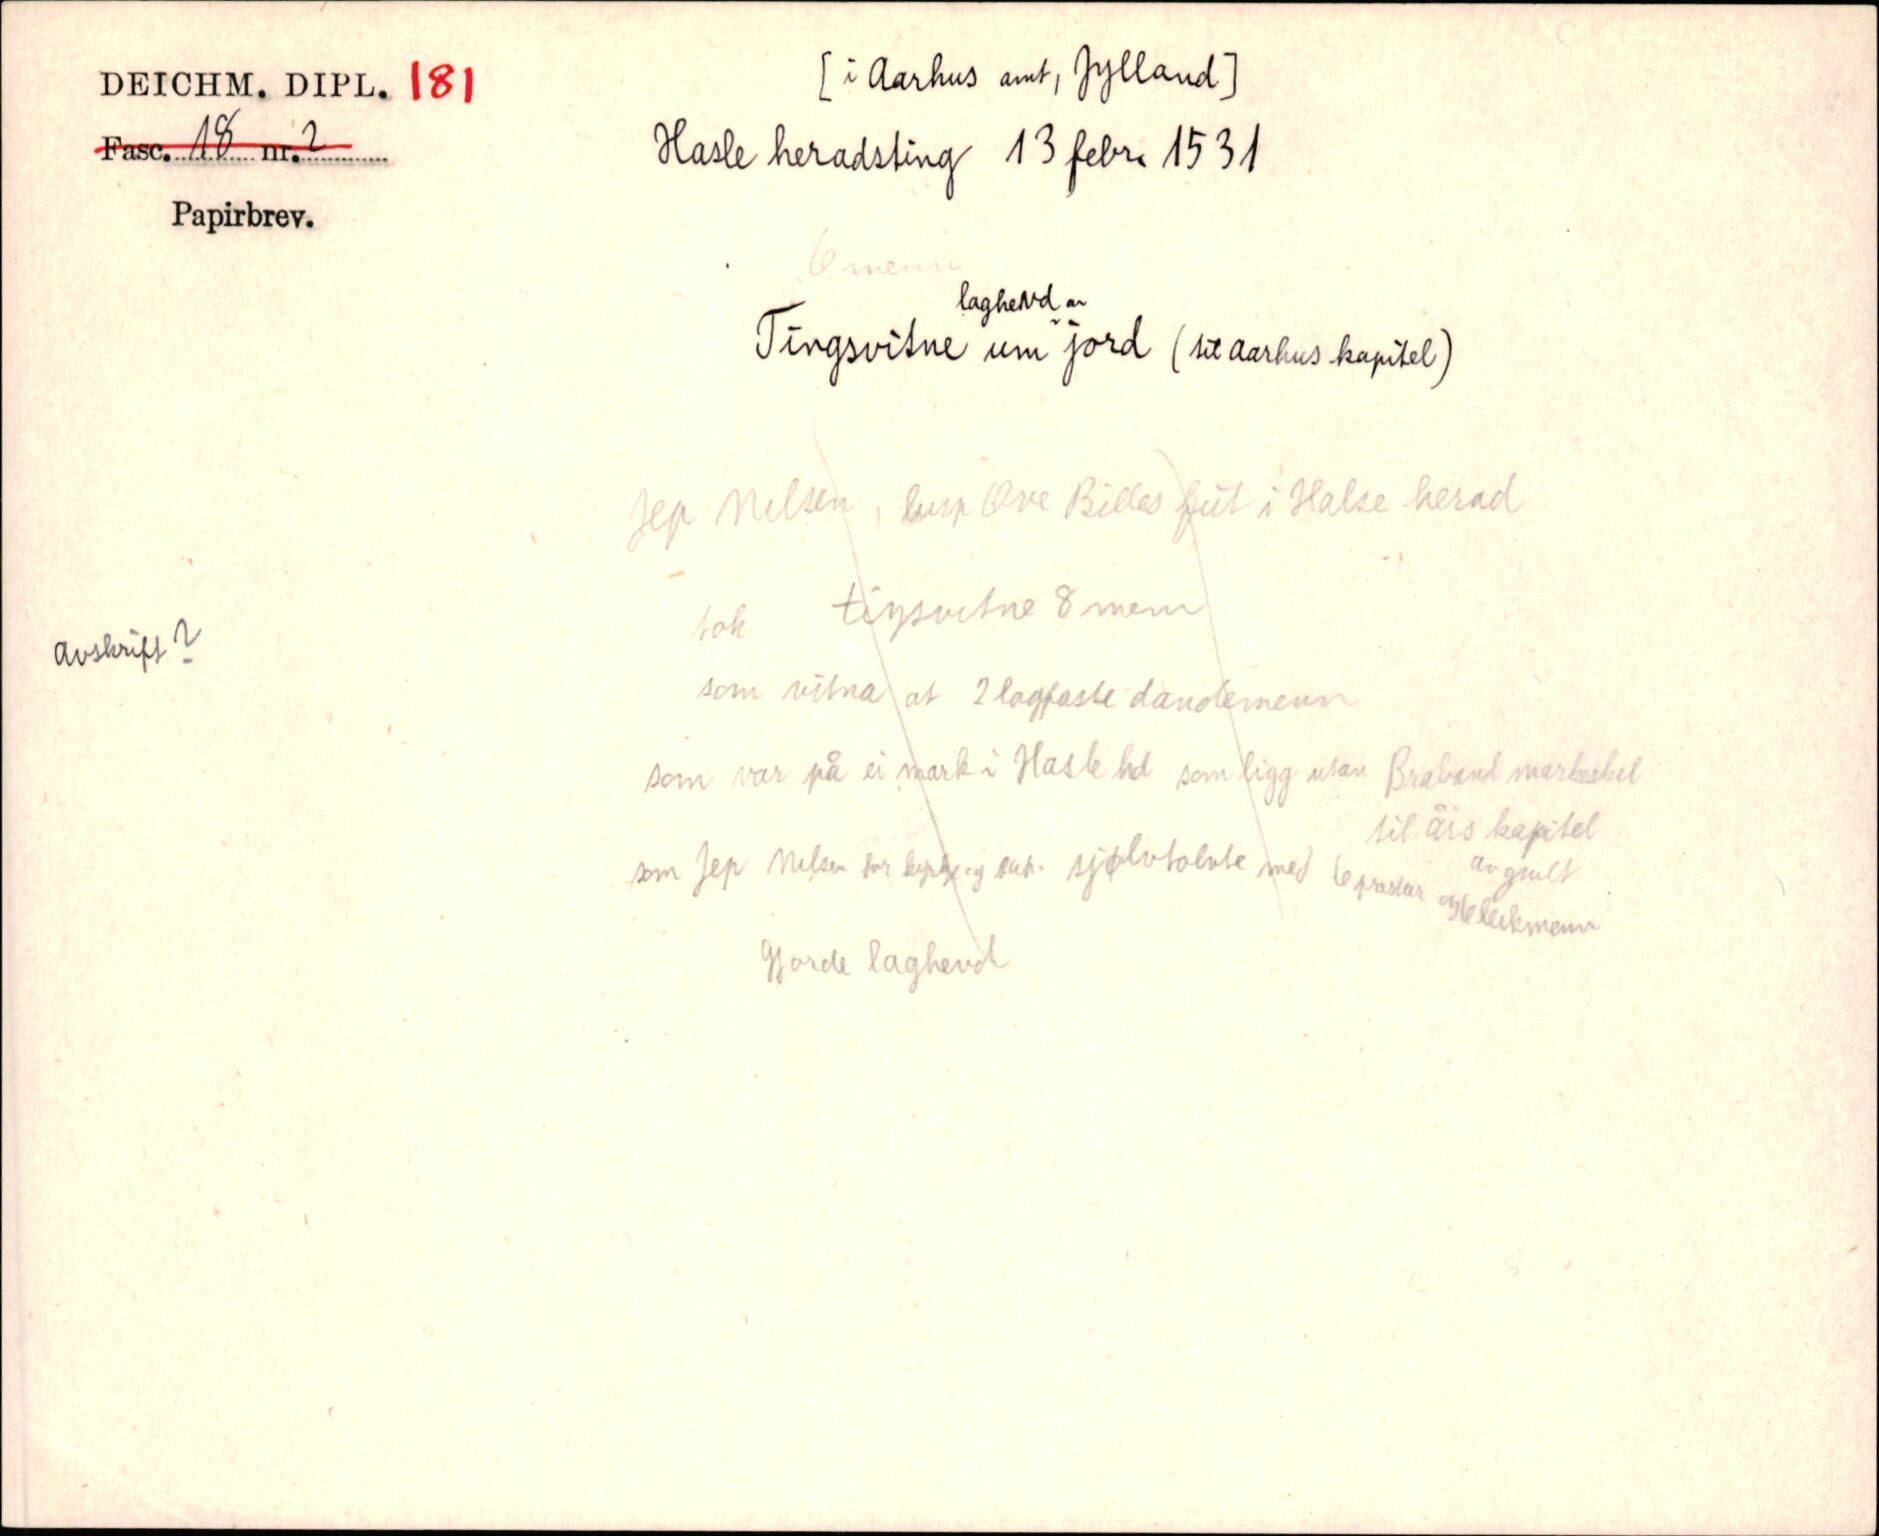 DEICHM. DIPL. 181
Fasc. 18 nr. 2
Papirbrev.
[i Aarhus amt, Jylland]
Hasle heradsting 13 febr. 1531
6 menn
laghevd av
Tingsvitne um jord (til Aarhus kapitel)
Jep Nilsen, Ove Billes fut i Halse herad
tok tingsvitne 8 menn
avskrift?
som vitna at 2 lagfaste dandemenn
som var på ei mark i Hasle hd som ligg utan Braband markeskel
til års kapitel
som Jep Nilsen for sjølvtolvte med 6 prestar
og 6 leikmenn
Gjorde laghevd